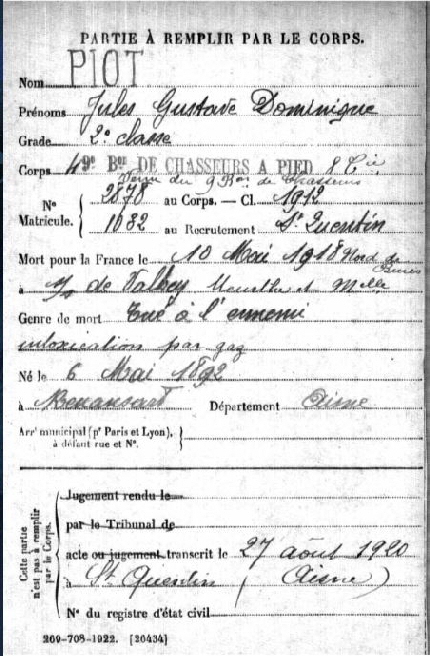 PARTIE À REMPLIR PAR LE CORPS.
Nom PIOT
Prénoms Jules Gustave Dominique
Grade 2e classe
Corps 49e Bon DE CHASSEURS A PIED 8 Cie
Venu du 9 Bon de Chasseurs
N° 2878 au Corps. — Cl. 1912
Matricule. 1082 au Recrutement St Quentin
Mort pour la France le 10 Mai 1918 Nord de
à de Meurthe et Melle
Genre de mort Tué à l'ennemi
intoxication par gaz
Né le 6 Mai 1892
à Département Aisne
Arrt municipal (pr Paris et Lyon),
à défaut rue et N°.
Cette partie
n'est pas à remplir
par le Corps.
Jugement rendu le
par le Tribunal de
acte ou jugement transcrit le 27 août 1920
à St Quentin (Aisne)
N° du registre d'état civil
269-708-1922. [26434]